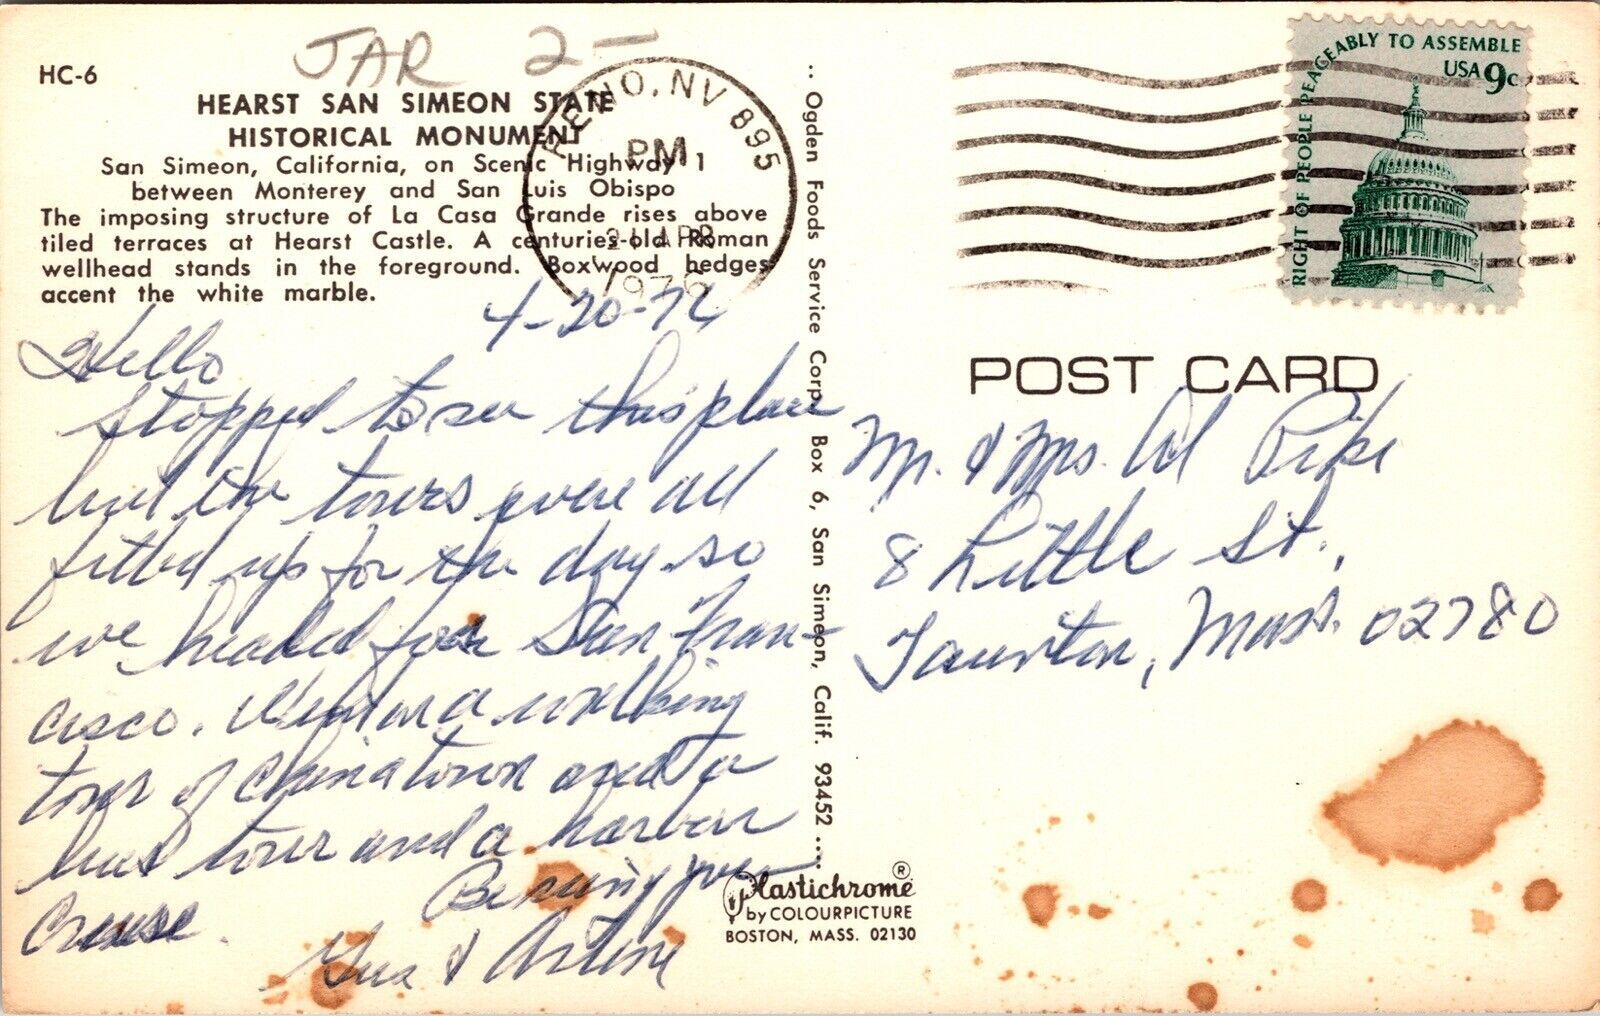 JAR 2-
HC-6
HEARST SAN SIMEON STATE
HISTORICAL MONUMENT
San Simeon, California, on Scenic Highway 1
between Monterey and San Luis Obispo
The imposing structure of La Casa Grande rises above
tiled terraces at Hearst Castle. A centuries-old Roman
wellhead stands in the foreground. Boxwood hedges
accent the white marble.
RENO, NV 895
PM
21 APR
1976
4-20-76
Hello
Stopped to see this place
but the tours were all
filled up for the day so
we headed for San Fran-
cisco. Went on a walking
tour of Chinatown and a
bus tour and a harbor
Cruise.
Be seeing you
Gus & Arlene
.. Ogden Foods Service Corp. Box 6, San Simeon, Calif. 93452 ....
Plastichrome ®
by COLOURPICTURE
BOSTON, MASS. 02130
RIGHT OF PEOPLE PEACEABLY TO ASSEMBLE
USA 9c
POST CARD
Mr. & Mrs. Al Pike
8 Little St.,
Taunton, Mass. 02780